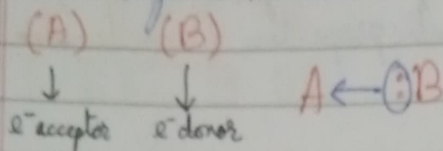 (A) (B)
↓ ↓
e⁻ acceptor e⁻ donor
A ← :B